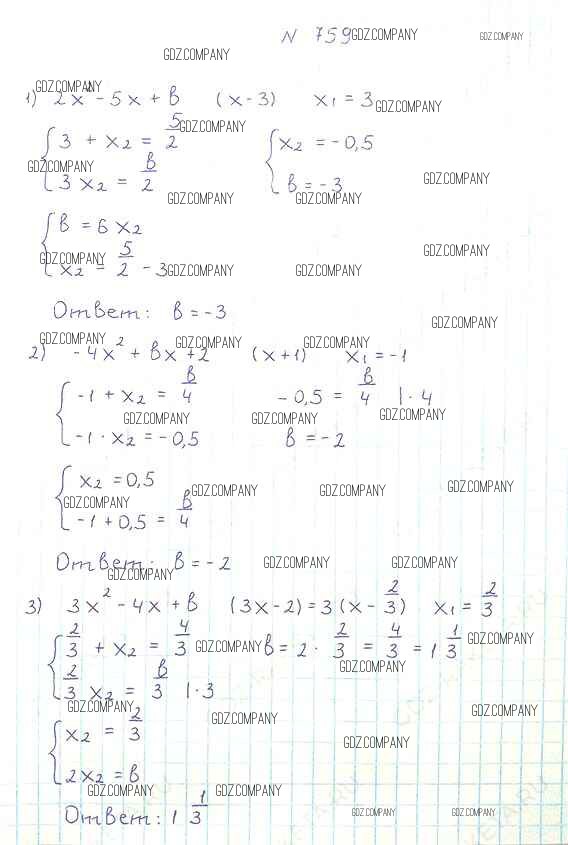 N 759 GDZ.COMPANY GDZ.COMPANY
GDZ.COMPANY
GDZ.COMPANY
1) 2x² - 5x + b (x - 3) x₁ = 3 GDZ.COMPANY
{ 3 + x₂ = 5/2 GDZ.COMPANY { x₂ = -0,5
GDZ.COMPANY
3x₂ = b/2 GDZ.COMPANY b = -3 GDZ.COMPANY GDZ.COMPANY
{ b = 6x₂
GDZ.COMPANY GDZ.COMPANY
x₂ = 5/2 - 3 GDZ.COMPANY GDZ.COMPANY
Ответ: b = -3 GDZ.COMPANY
GDZ.COMPANY GDZ.COMPANY GDZ.COMPANY
2) -4x² + bx + 2 (x + 1) x₁ = -1
{ -1 + x₂ = b/4 -0,5 = b/4 | · 4
GDZ.COMPANY GDZ.COMPANY GDZ.COMPANY
-1 · x₂ = -0,5 b = -2
{ x₂ = 0,5 GDZ.COMPANY GDZ.COMPANY GDZ.COMPANY
GDZ.COMPANY
-1 + 0,5 = b/4
Ответ: b = -2 GDZ.COMPANY GDZ.COMPANY
GDZ.COMPANY
3) 3x² - 4x + b (3x - 2) = 3(x - 2/3) x₁ = 2/3
{ 2/3 + x₂ = 4/3 GDZ.COMPANY b = 2 · 2/3 = 4/3 = 1 1/3 GDZ.COMPANY
GDZ.COMPANY
2/3 x₂ = b/3 | · 3
GDZ.COMPANY GDZ.COMPANY GDZ.COMPANY
{ x₂ = 2/3 GDZ.COMPANY
2x₂ = b
GDZ.COMPANY GDZ.COMPANY
Ответ: 1 1/3 GDZ.COMPANY GDZ.COMPANY